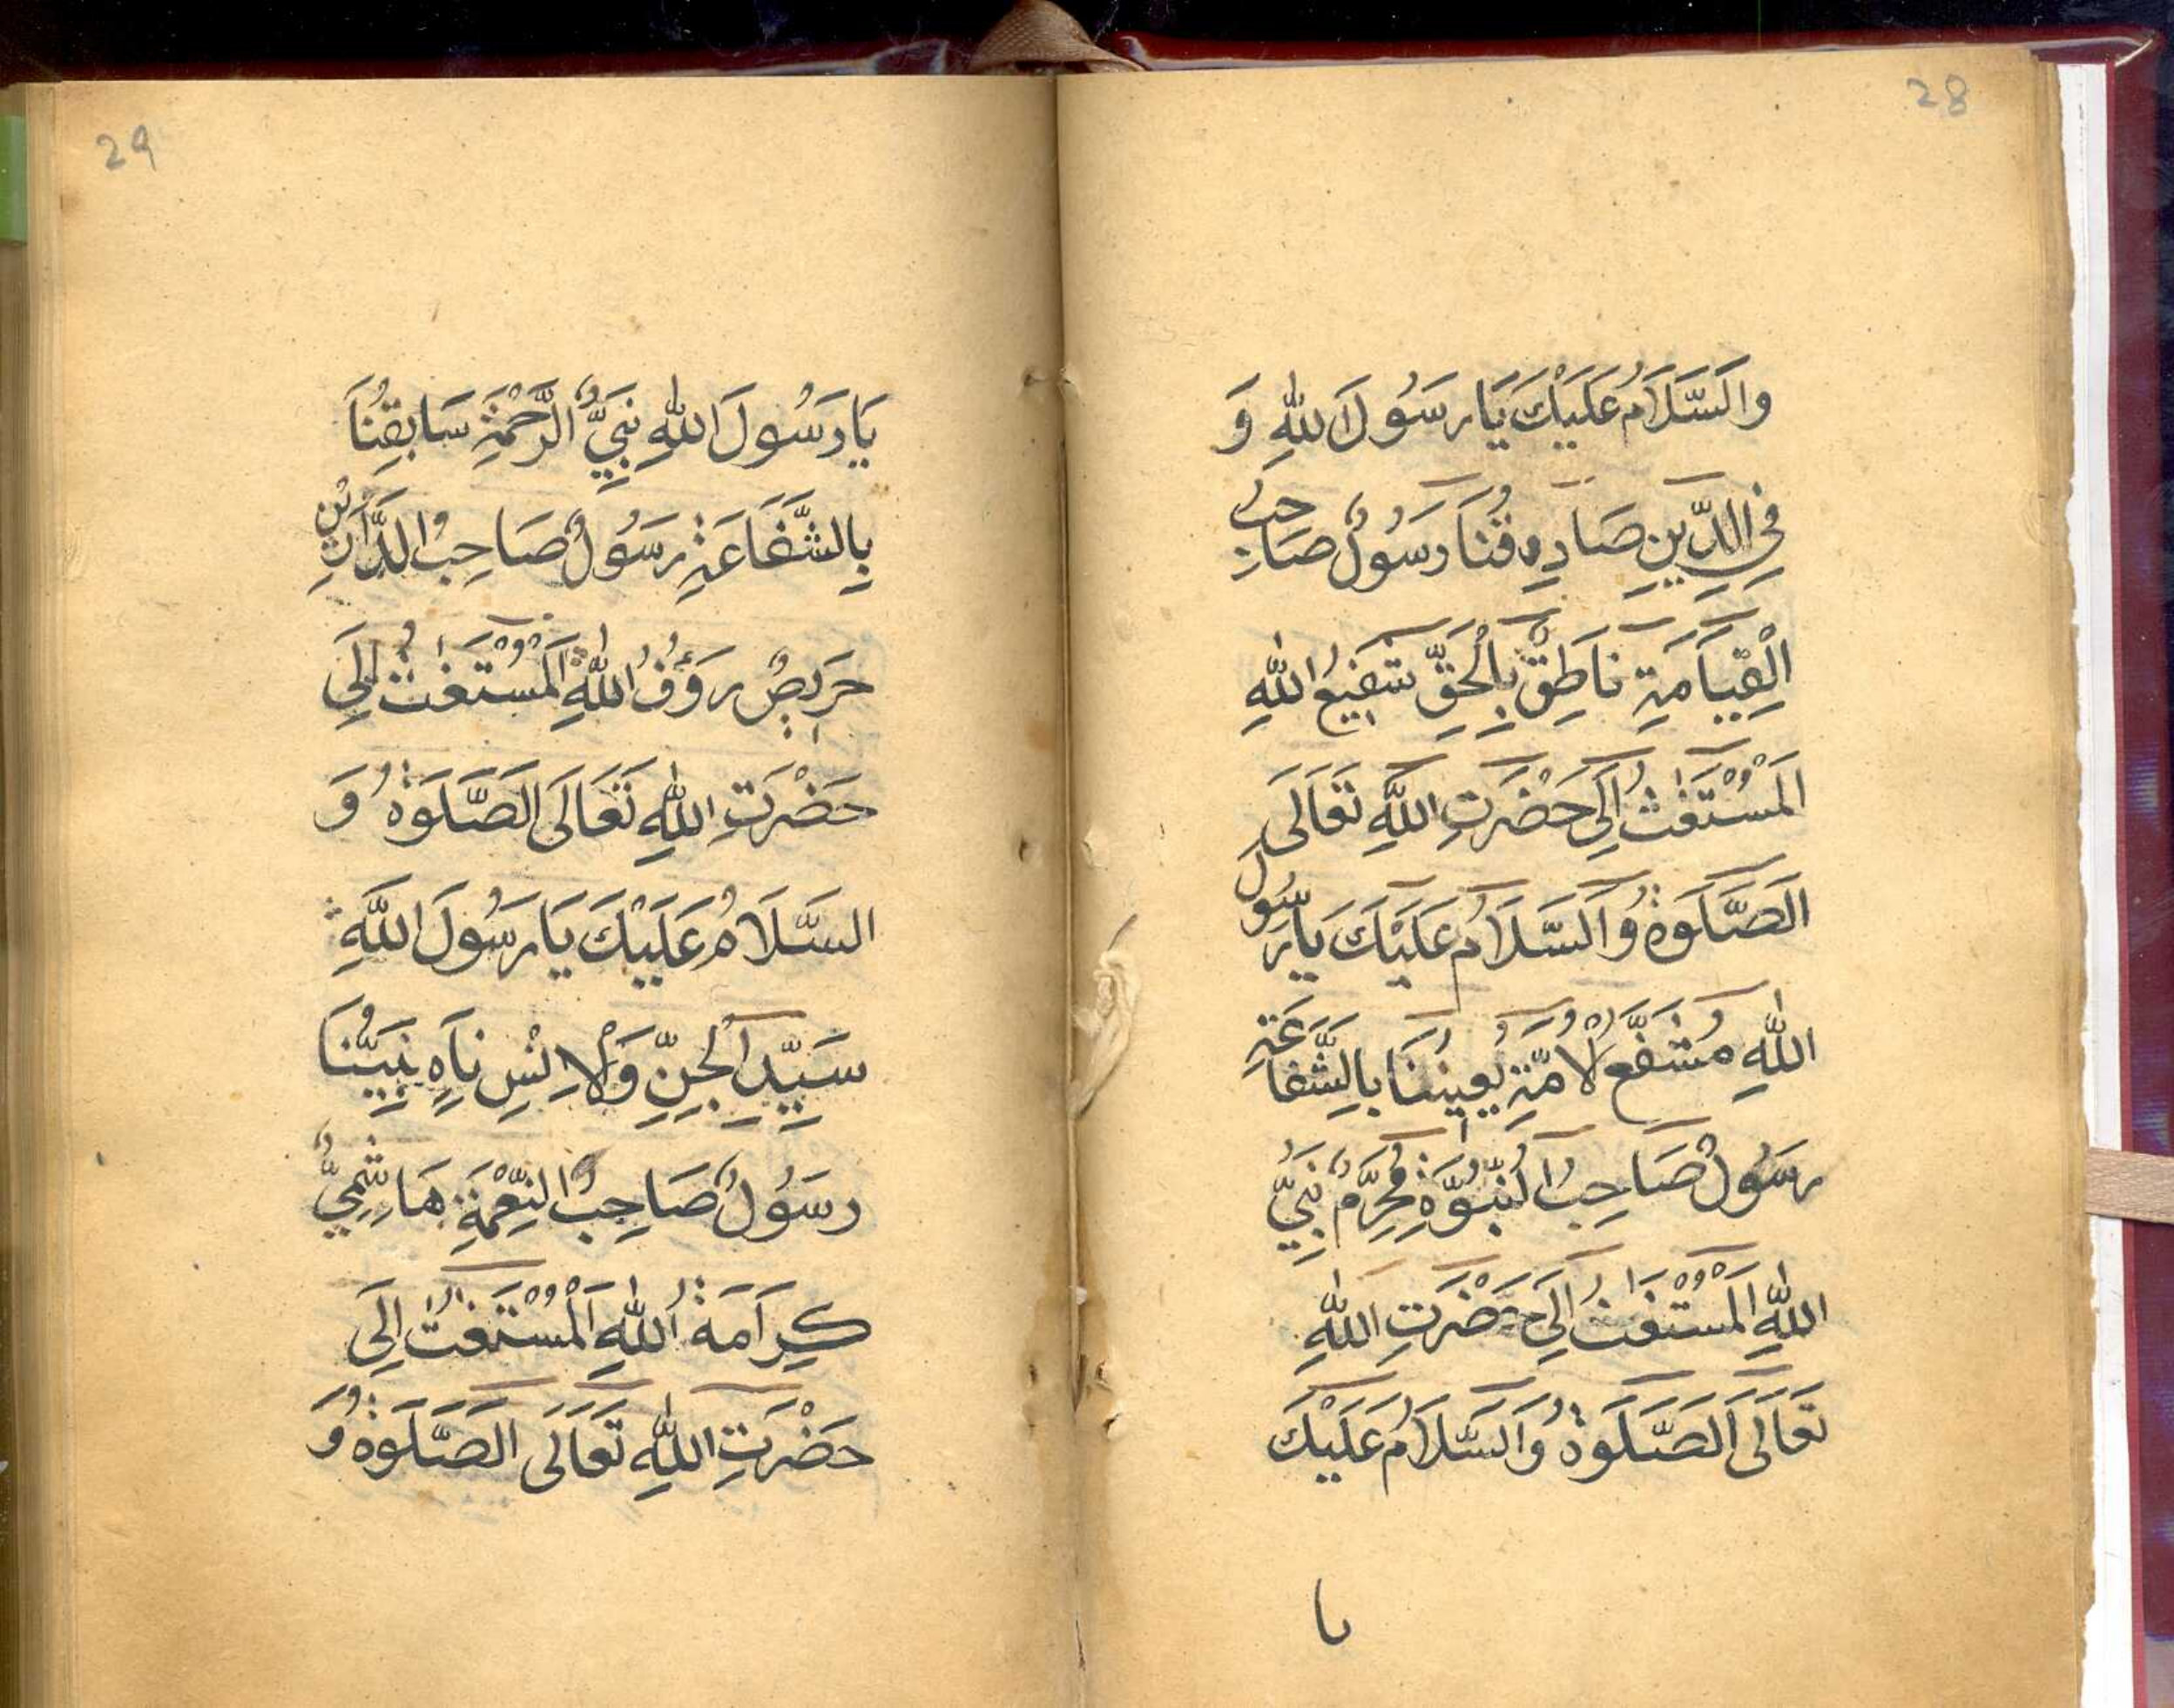 28
وَالسَّلَامُ عَلَيْكَ يَا رَسُولَ اللهِ وَ
فِي الدِّينِ صَادِقُنَا رَسُولٌ صَاحِبُ
الْقِيَامَةِ نَاطِقٌ بِالْحَقِّ شَفِيعُ اللهِ
الْمُسْتَغٰثُ اِلَى حَضْرَتِ اللهِ تَعَالَى
الصَّلَوٰةُ وَالسَّلَامُ عَلَيْكَ يَا رَسُولَ
اللهِ مُشَفَّعُ لْاُمَّةِ يُعِينُنَا بِالشَّفَاعَةِ
رَسُولٌ صَاحِبُ النُّبُوَّةِ مُحَرَّمٌ نَبِيُّ
اللهِ الْمُسْتَغٰثُ اِلَى حَضْرَتِ اللهِ
تَعَالَى الصَّلَوٰةُ وَالسَّلَامُ عَلَيْكَ
يا
29
يَا رَسُولَ اللهِ نَبِيُّ الرَّحْمَةِ سَابِقُنَا
بِالشَّفَاعَةِ رَسُولٌ صَاحِبُ الدَّارَيْنِ
حَرِيصٌ رَؤُفُ اللهِ الْمُسْتَغٰثُ اِلَى
حَضْرَتِ اللهِ تَعَالَى الصَّلَوٰةُ وَ
السَّلَامُ عَلَيْكَ يَا رَسُولَ اللهِ
سَيِّدُ الْجِنِّ وَلْاِنْسِ نَاهٍ نَبِيُّنَا
رَسُولٌ صَاحِبُ النِّعْمَةِ هَاشِمِيٌّ
كِرَامَةُ اللهِ الْمُسْتَغٰثُ اِلَى
حَضْرَتِ اللهِ تَعَالَى الصَّلَوٰةُ وَ